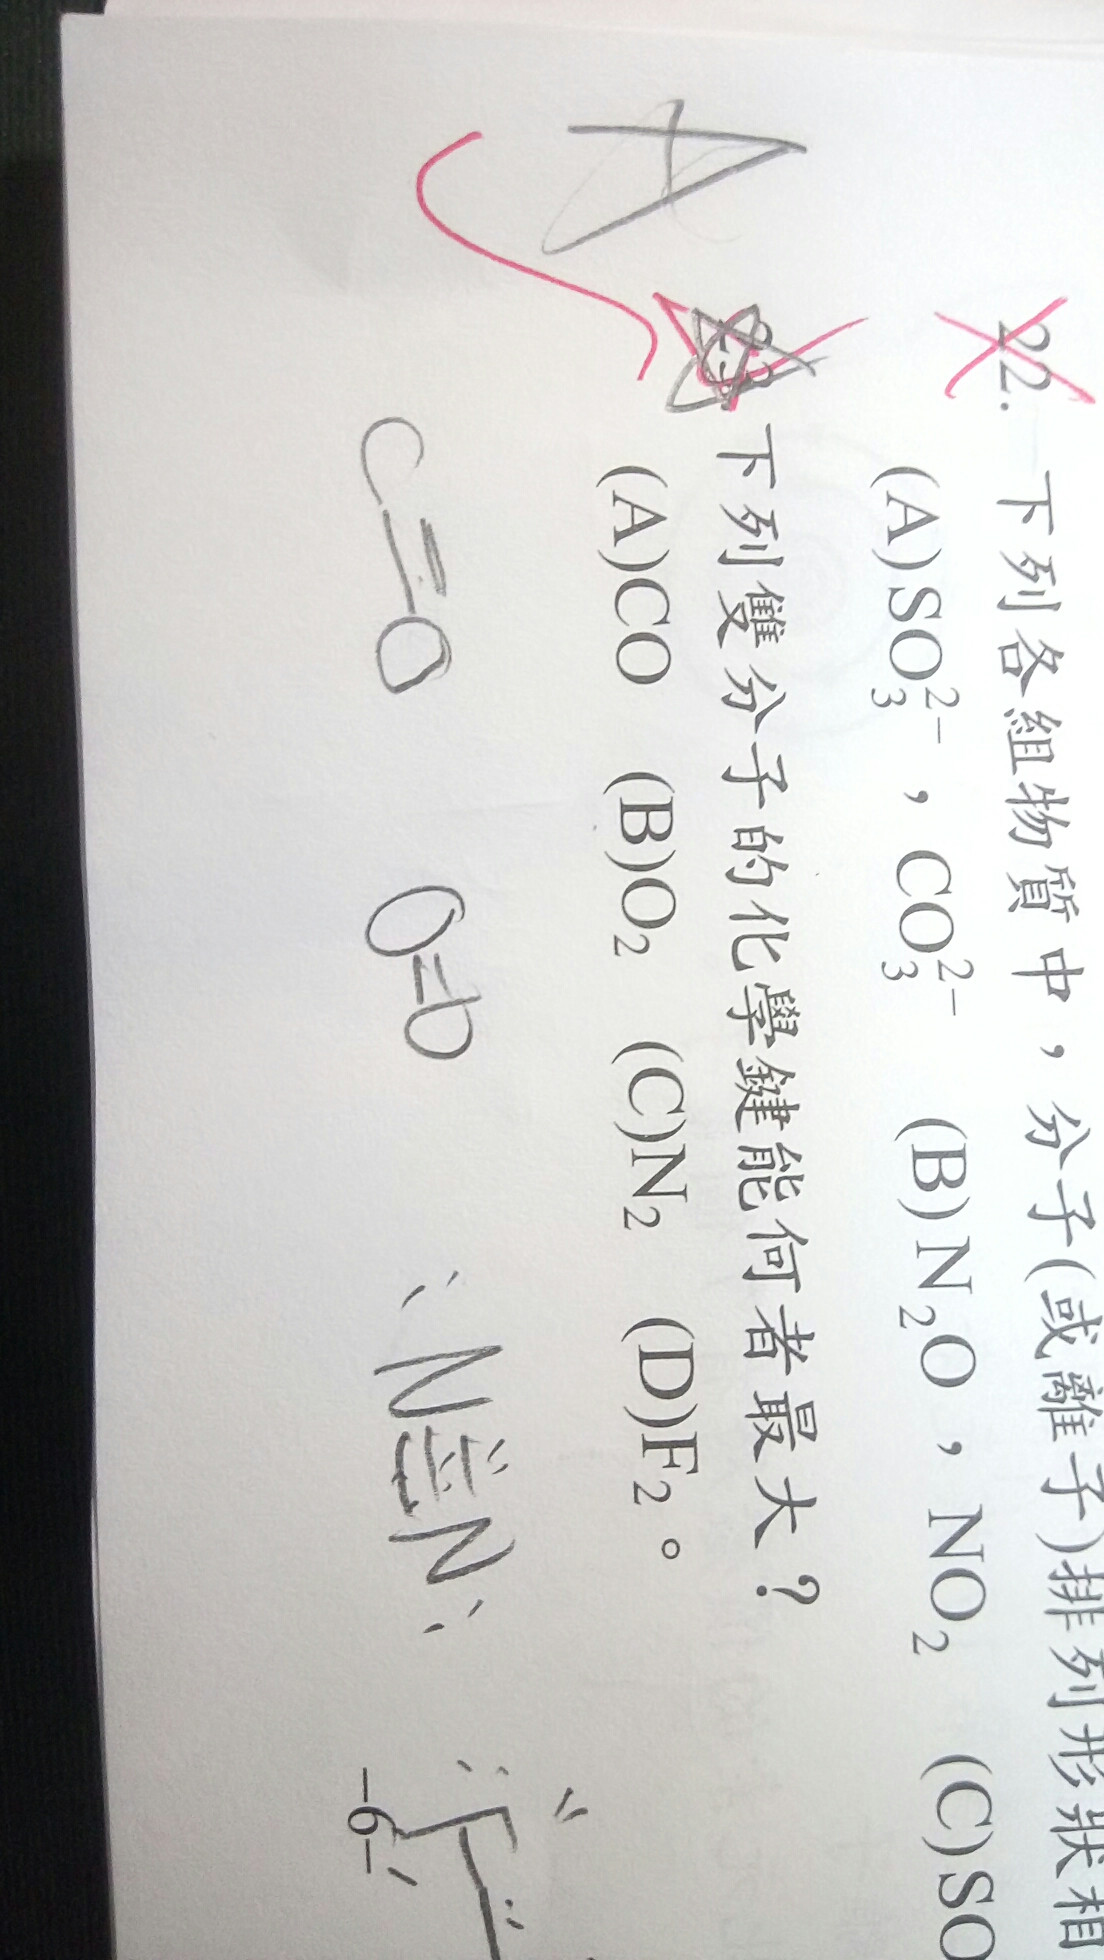 22. 下列各組物質中，分子(或離子)排列形狀相
(A)SO₃²⁻，CO₃²⁻ (B)N₂O，NO₂ (C)SO
A
下列雙分子的化學鍵能何者最大？
(A)CO (B)O₂ (C)N₂ (D)F₂。
C=O O=O :N≡N:
-6-